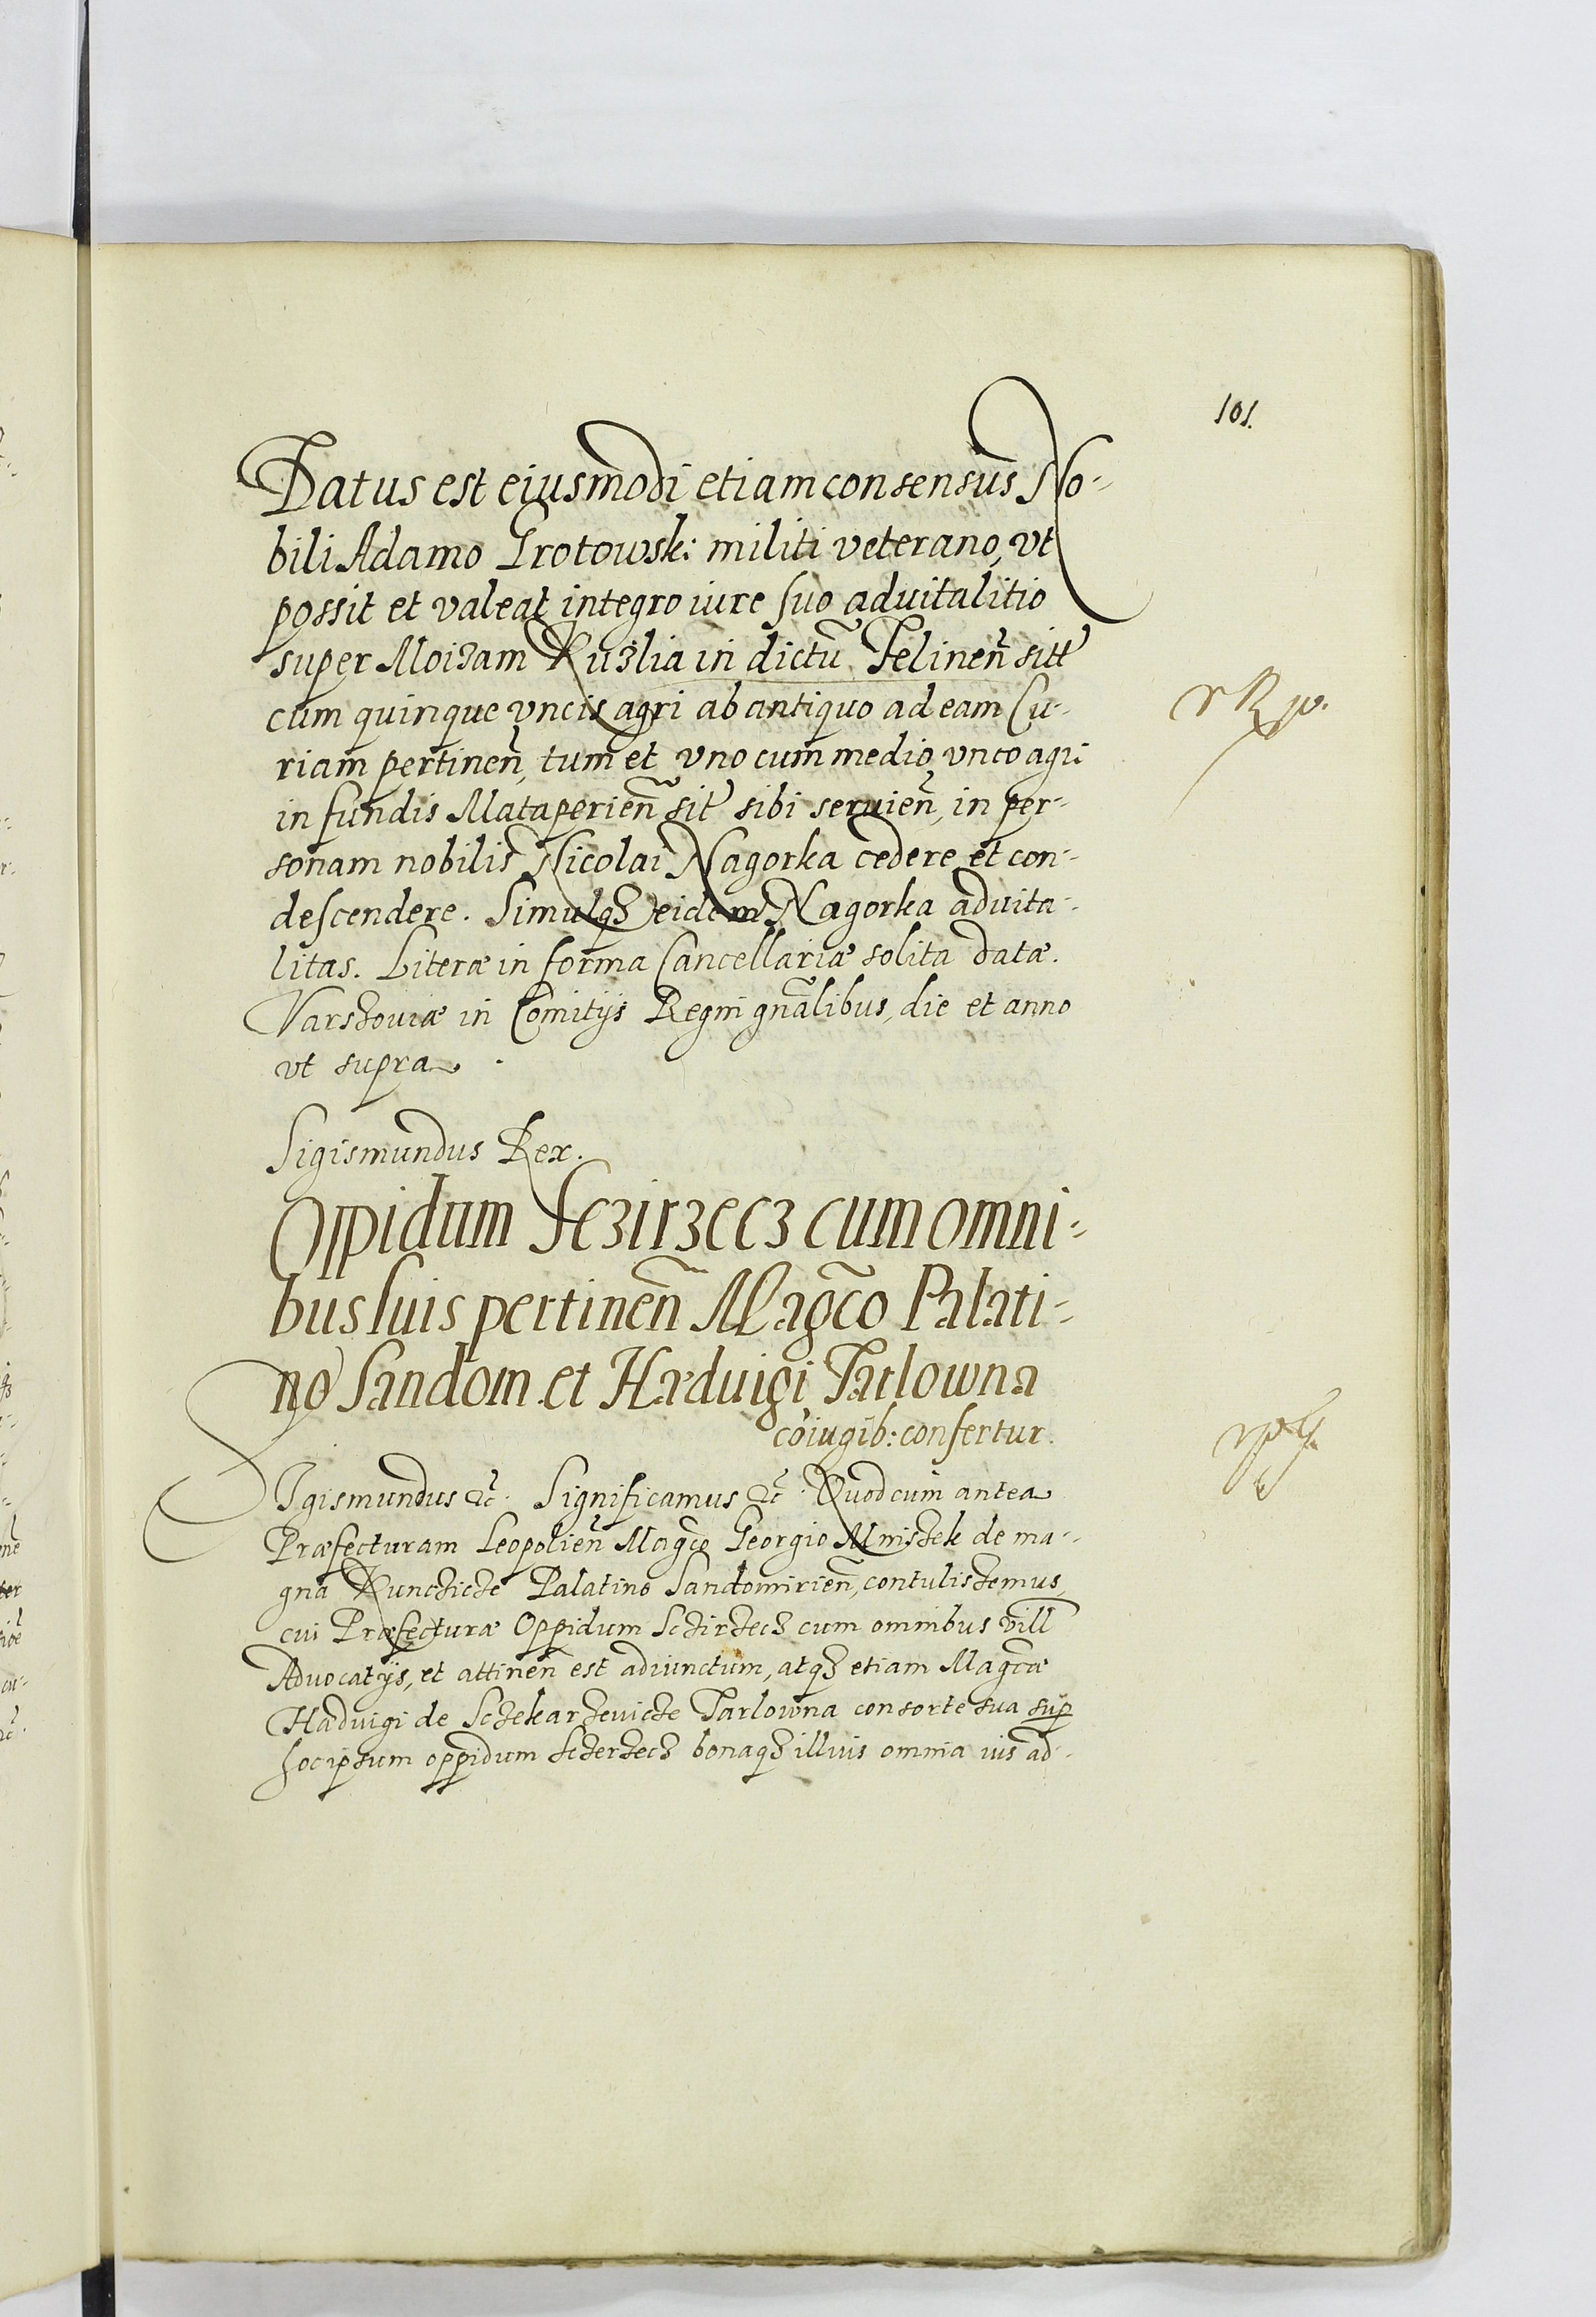 101.
Datus est eiusmodi etiam consensus No-
bili Adamo Grotowsk: militi veterano, vt
possit et valeat integro iure suo aduitalitio
super Moizam Kuzlia in dictu Felinen̄ sitt
cum quinque vncis agri ab antiquo ad eam Cu-
riam pertinen̄, tum et vno cum medio vnco agri
in fundis Mataperien̄ sit sibi seruien̄, in per-
sonam nobilis Nicolai Nagorka cedere et con-
descendere. Simulqꝫ eidem Nagorka aduita-
litas. Literæ in forma Cancellariæ solita datæ.
Varszouiæ in Comitijs Regni gn̄alibus, die et anno
vt supra.
Sigismundus Rex.
Oppidum Sczirzecz cum omni-
bus suis pertinen̄ Magc̄o Palati-
no Sandom. et Hæduigi Tarlowna
cōiugib: confertur.
SIgismundus &c̄. Significamus &c̄. Quod cum antea
Præfecturam Leopolien̄ Magc̄o Georgio Mniszek de ma-
gna Kunczicze Palatino Sandomirien̄, contulissemus,
cui Præfecturæ Oppidum Sczirzecz cum omnibus vill̄
Aduocatijs, et attinen̄ est adiunctum, atqꝫ etiam Magc̄æ
Hæduigi de Sczekarzevicze Tarlowna consorte sua sup
hoc ipsum oppidum Sczerzecz bonaqꝫ illius omnia ius ad-